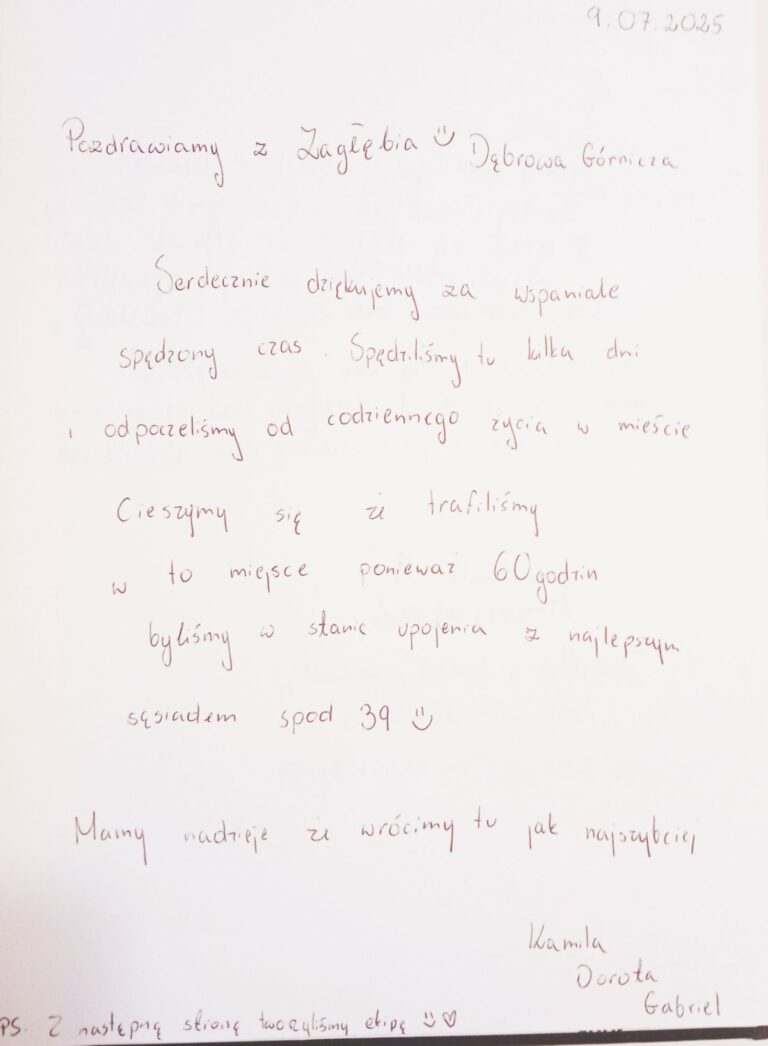 9.07.2025
Pozdrawiamy z Zagłębia Dąbrowa Górnicza
Serdecznie dziękujemy za wspaniale
spędzony czas. Spędziliśmy tu kilka dni
i odpoczeliśmy od codziennego życia w mieście
Cieszymy się że trafiliśmy
w to miejsce ponieważ 60 godzin
byliśmy w stanie upojenia z najlepszym
sąsiadem spod 39
Mamy nadzieje że wrócimy tu jak najszybciej
Kamila
Dorota
Gabriel
PS. Z następną stroną tworzyliśmy ekipę